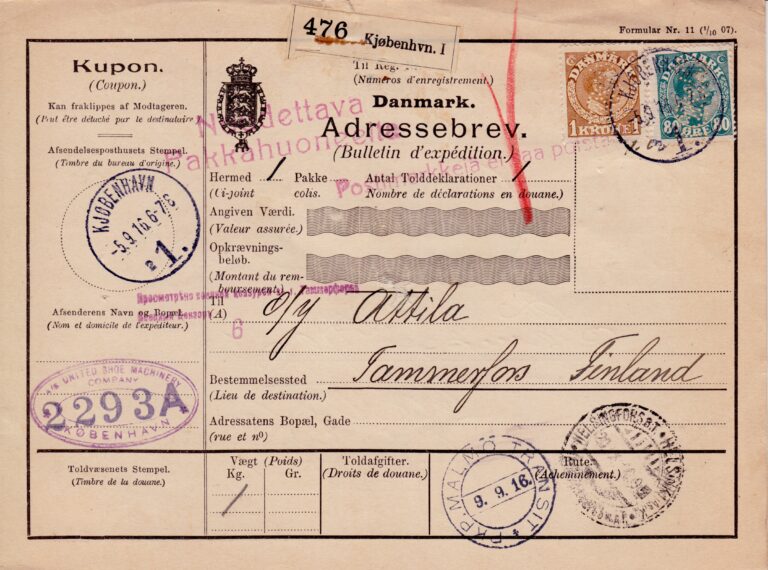 Formular Nr. 11 (1/10 07).
476 Kjøbenhvn. I
Kupon.
(Coupon.)
Kan fraklippes af Modtageren.
(Peut être détaché par le destinataire
Afsendelsesposthusets Stempel.
(Timbre du bureau d'origine.)
KJØBENHAVN
-5.9.16.6-7
1.
Afsenderens Navn og Bopæl.
(Nom et domicile de l'expéditeur.)
A/S UNITED SHOE MACHINERY
COMPANY
2293A
KØBENHAVN
Toldvæsenets Stempel.
(Timbre de la douane.)
Til Reg.
(Numéros d'enregistrement.)
Danmark.
Adressebrev.
(Bulletin d'expédition.)
Pakkahuoneelta
DANMARK
1 KRONE 1
80 ØRE 80
1.
Hermed 1 Pakke Antal Tolddeklarationer 1
(Ci-joint colis. Nombre de déclarations en douane.)
Angiven Værdi.
(Valeur assurée.)
Opkrævnings-
beløb.
(Montant du rem-
boursement.)
6
Til
(A)
o/y Attila
Bestemmelsessted
(Lieu de destination.)
Tammerfors Finland
Adressatens Bopæl, Gade
(rue et nº)
Vægt (Poids)
Kg. Gr.
1
Toldafgifter.
(Droits de douane.)
PKP. MALMÖ TRANSIT
9. 9. 16.
Rute.
(Acheminement.)
HELSINGFORS